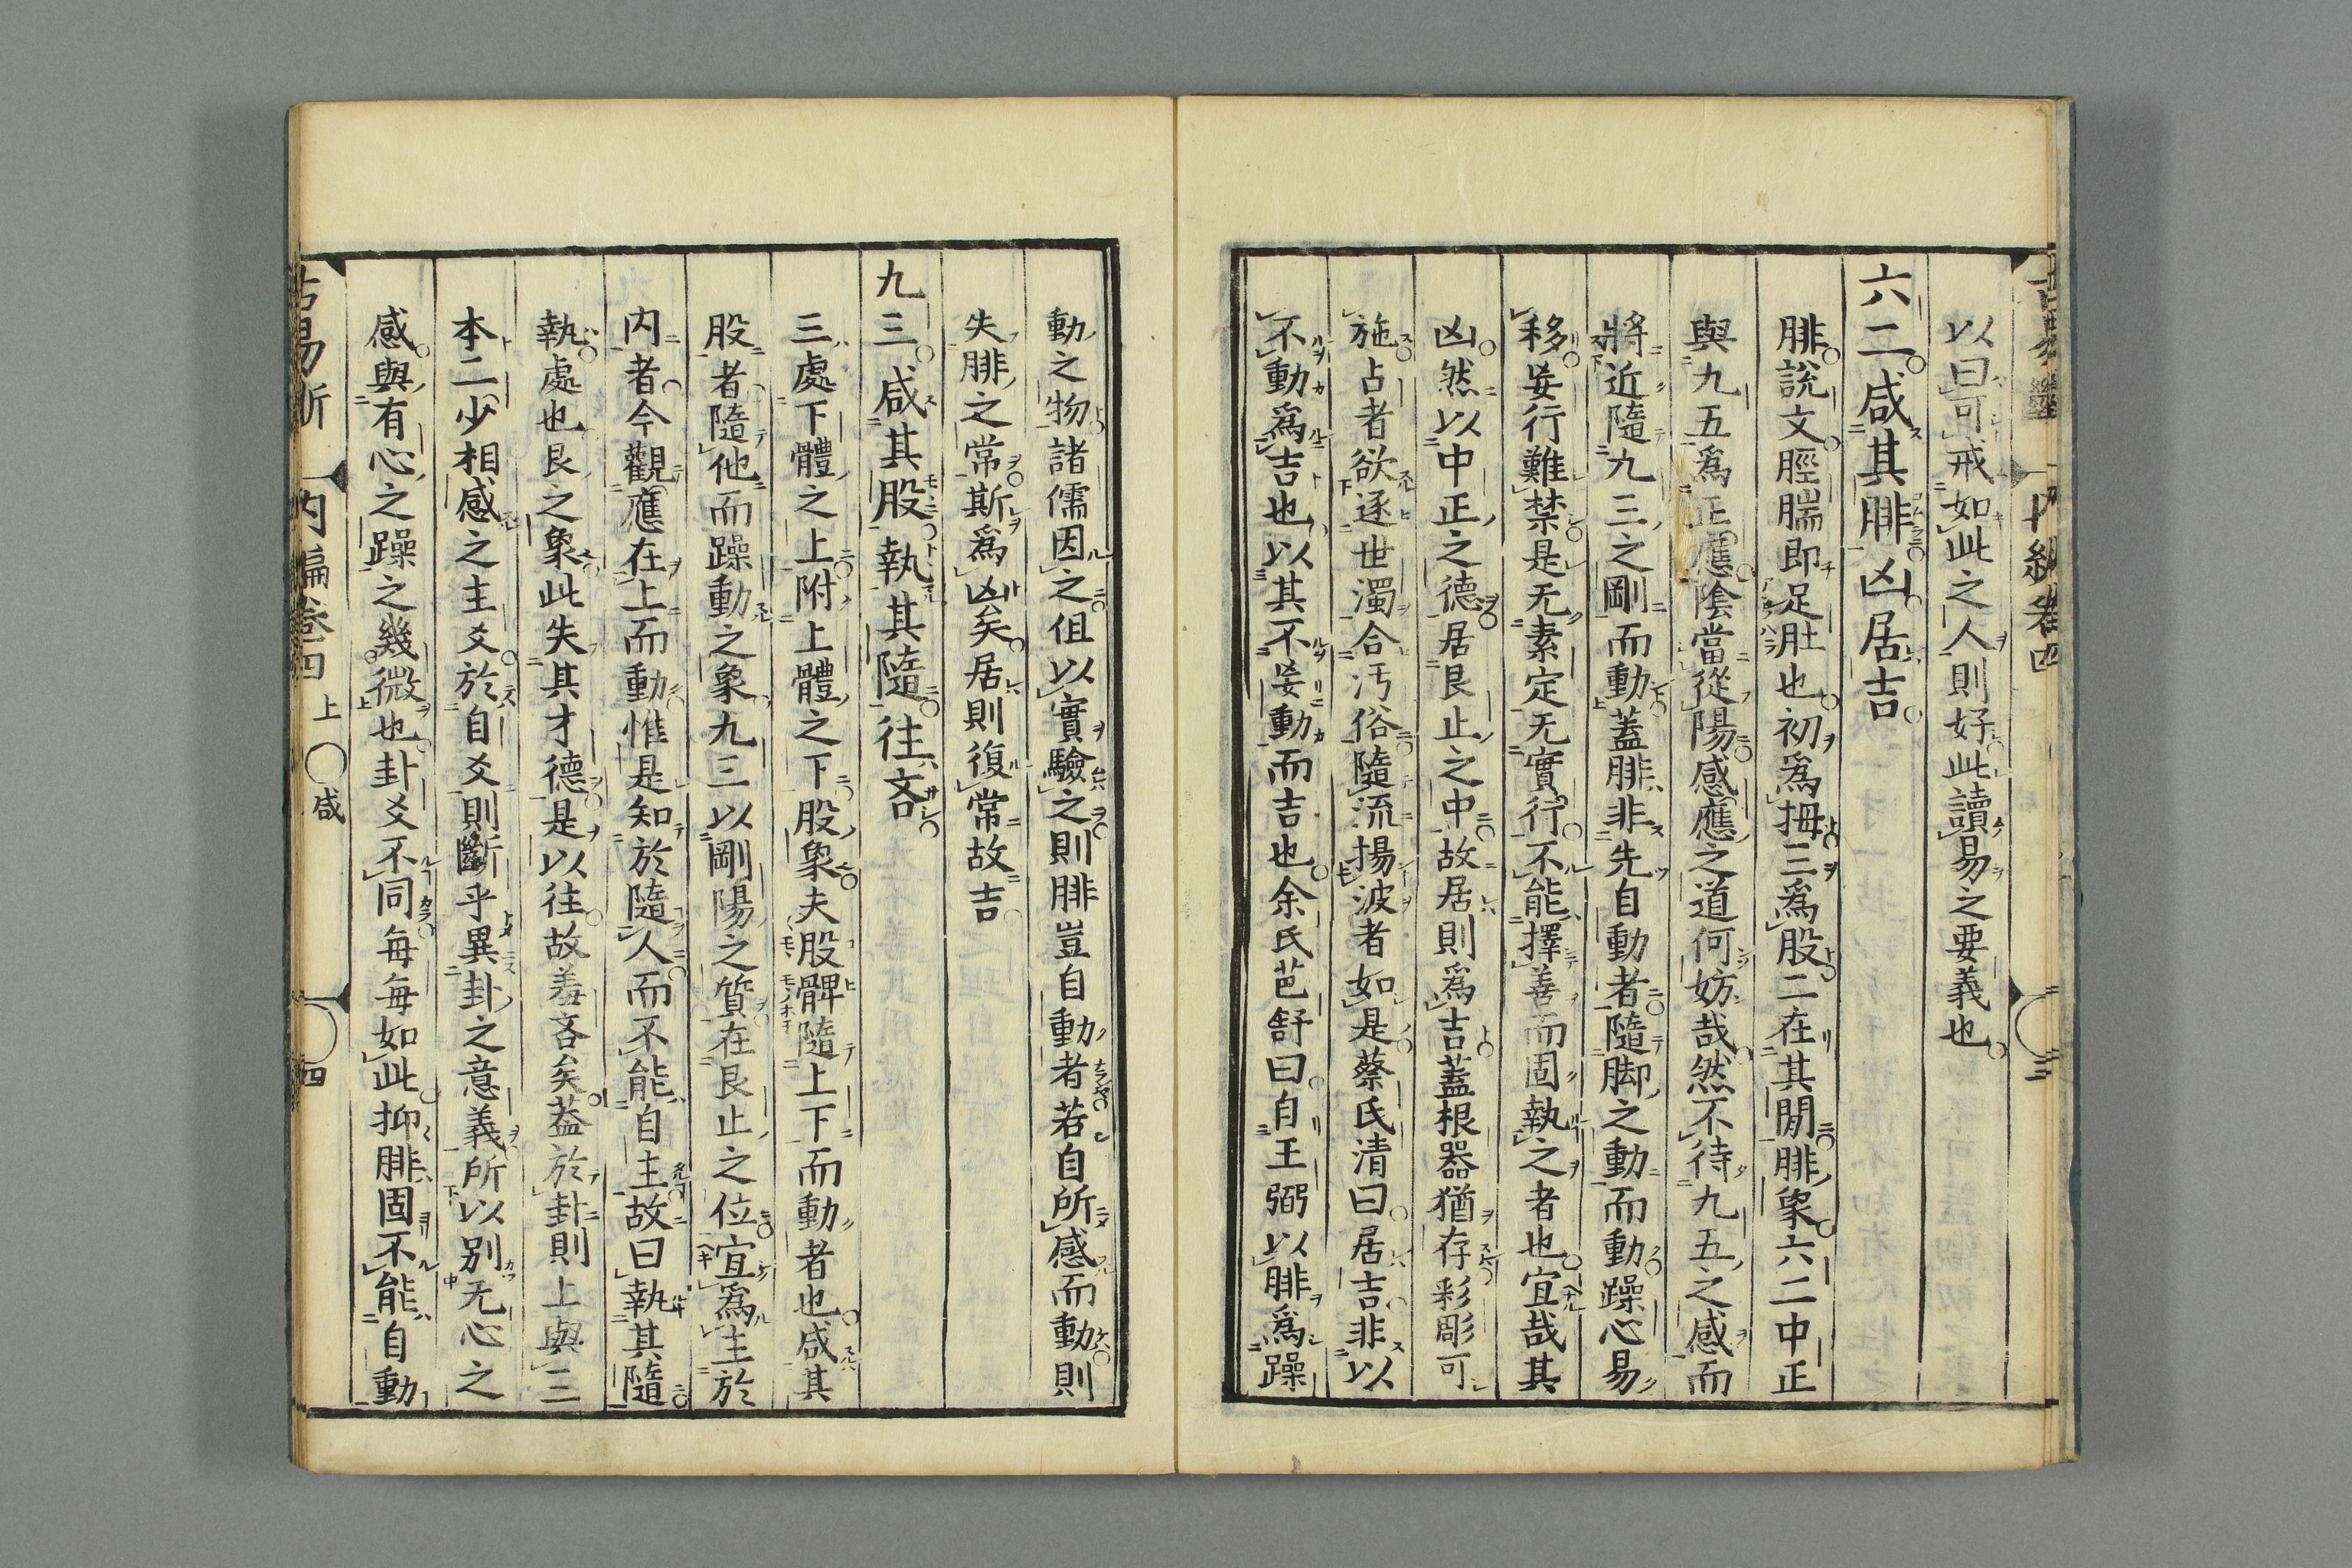 以曰可戒如此之人則好此讀易之要義也
六二咸其腓凶居吉
腓說文脛腨即足肚也初爲拇三爲股二在其間腓象六二中正
與九五爲正應陰當從陽感應之道何妨哉然不待九五之感而
將近隨九三之剛而動蓋腓非先自動者隨脚之動而動躁心易
移妄行難禁是无素定无實行不能擇善而固執之者也宜哉其
凶然以中正之德居艮止之中故居則爲吉蓋根器猶存彩彫可
施占者欲逐世濁合汚俗隨流揚波者如是蔡氏清曰居吉非以
不動爲吉也以其不妄動而吉也余氏芭舒曰自王弼以腓爲躁
動之物諸儒因之但以實驗之則腓豈自動者若自所感而動則
失腓之常斯爲凶矣居則復常故吉
九三咸其股執其隨往吝
三處下體之上附上體之下股象夫股髀隨上下而動者也咸其
股者隨他而躁動之象九三以剛陽之質在艮止之位宜爲主於
内者今觀應在上而動惟是知於隨人而不能自主故曰執其隨
執處也艮之象此失其才德是以往故羞吝矣蓋於卦則上與三
本二少相感之主爻於自爻則斷乎異卦之意義所以别无心之
感與有心之躁之幾微也卦爻不同每每如此抑腓固不能自動
古易斷 内編卷四上 〇咸 四